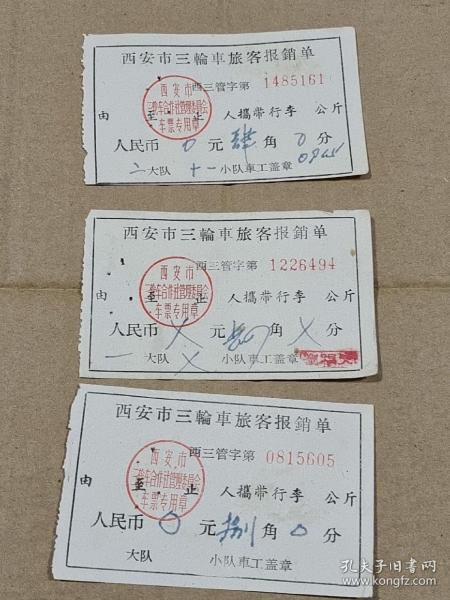 西安市三輪車旅客报銷单
西三管字第 1485161
西安市
三轮车合作社管理委員会
车票专用章
由 至 止 人攜帶行李 公斤
人民币 0 元 肆 角 0 分
二大队 十一小队車工盖章 0944
西安市三輪車旅客报銷单
西三管字第 1226494
西安市
三轮车合作社管理委員会
车票专用章
由 至 止 人攜帶行李 公斤
人民币 X 元 角 X 分
一 大队 X 小队車工盖章
西安市三輪車旅客报銷单
西三管字第 0815605
西安市
三轮车合作社管理委員会
车票专用章
由 至 止 人攜帶行李 公斤
人民币 0 元 捌 角 0 分
大队 小队車工盖章
孔夫子旧书网
www.kongfz.com